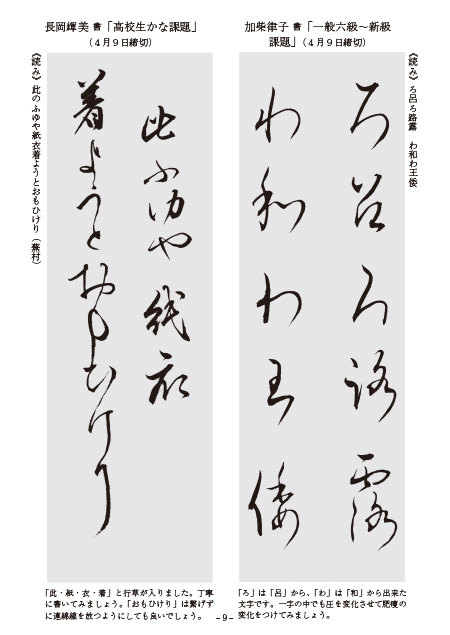 加柴律子 書「一般六級〜新級
課題」（４月９日締切）
《読み》ろ呂ろ路露　わ和わ王倭
ろ呂ろ路露
わ和わ王倭
「ろ」は「呂」から、「わ」は「和」から出来た
文字です。一字の中でも圧を変化させて肥痩の
変化をつけてみましょう。
長岡輝美 書「高校生かな課題」
（４月９日締切）
此ふゆや紙衣
着ようとおもひけり
《読み》此のふゆや紙衣着ようとおもひけり（蕪村）
「此・紙・衣・着」と行草が入りました。丁寧
に書いてみましょう。「おもひけり」は繋げず
に連綿線を放つようにしても良いでしょう。
－9－